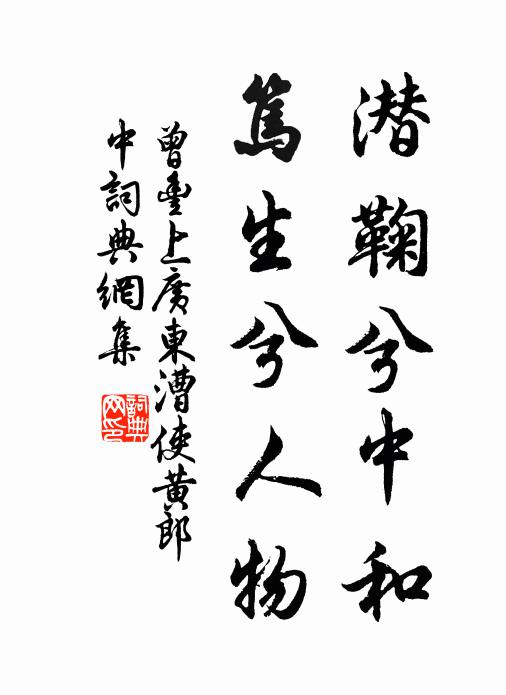 潜鞠兮中和
篤生兮人物
曾豊上廣東漕使黄郎
中詞典網集
詞典
网印